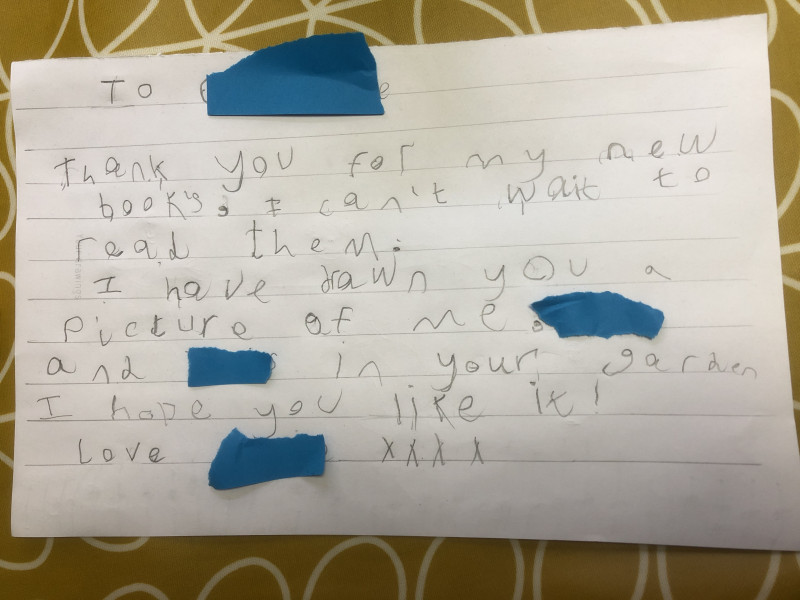 To
thank you for my new
book's. I can't wait to
read them.
I have drawn you a
picture of me,
and in your garden
I hope you like it!
Love xxxx